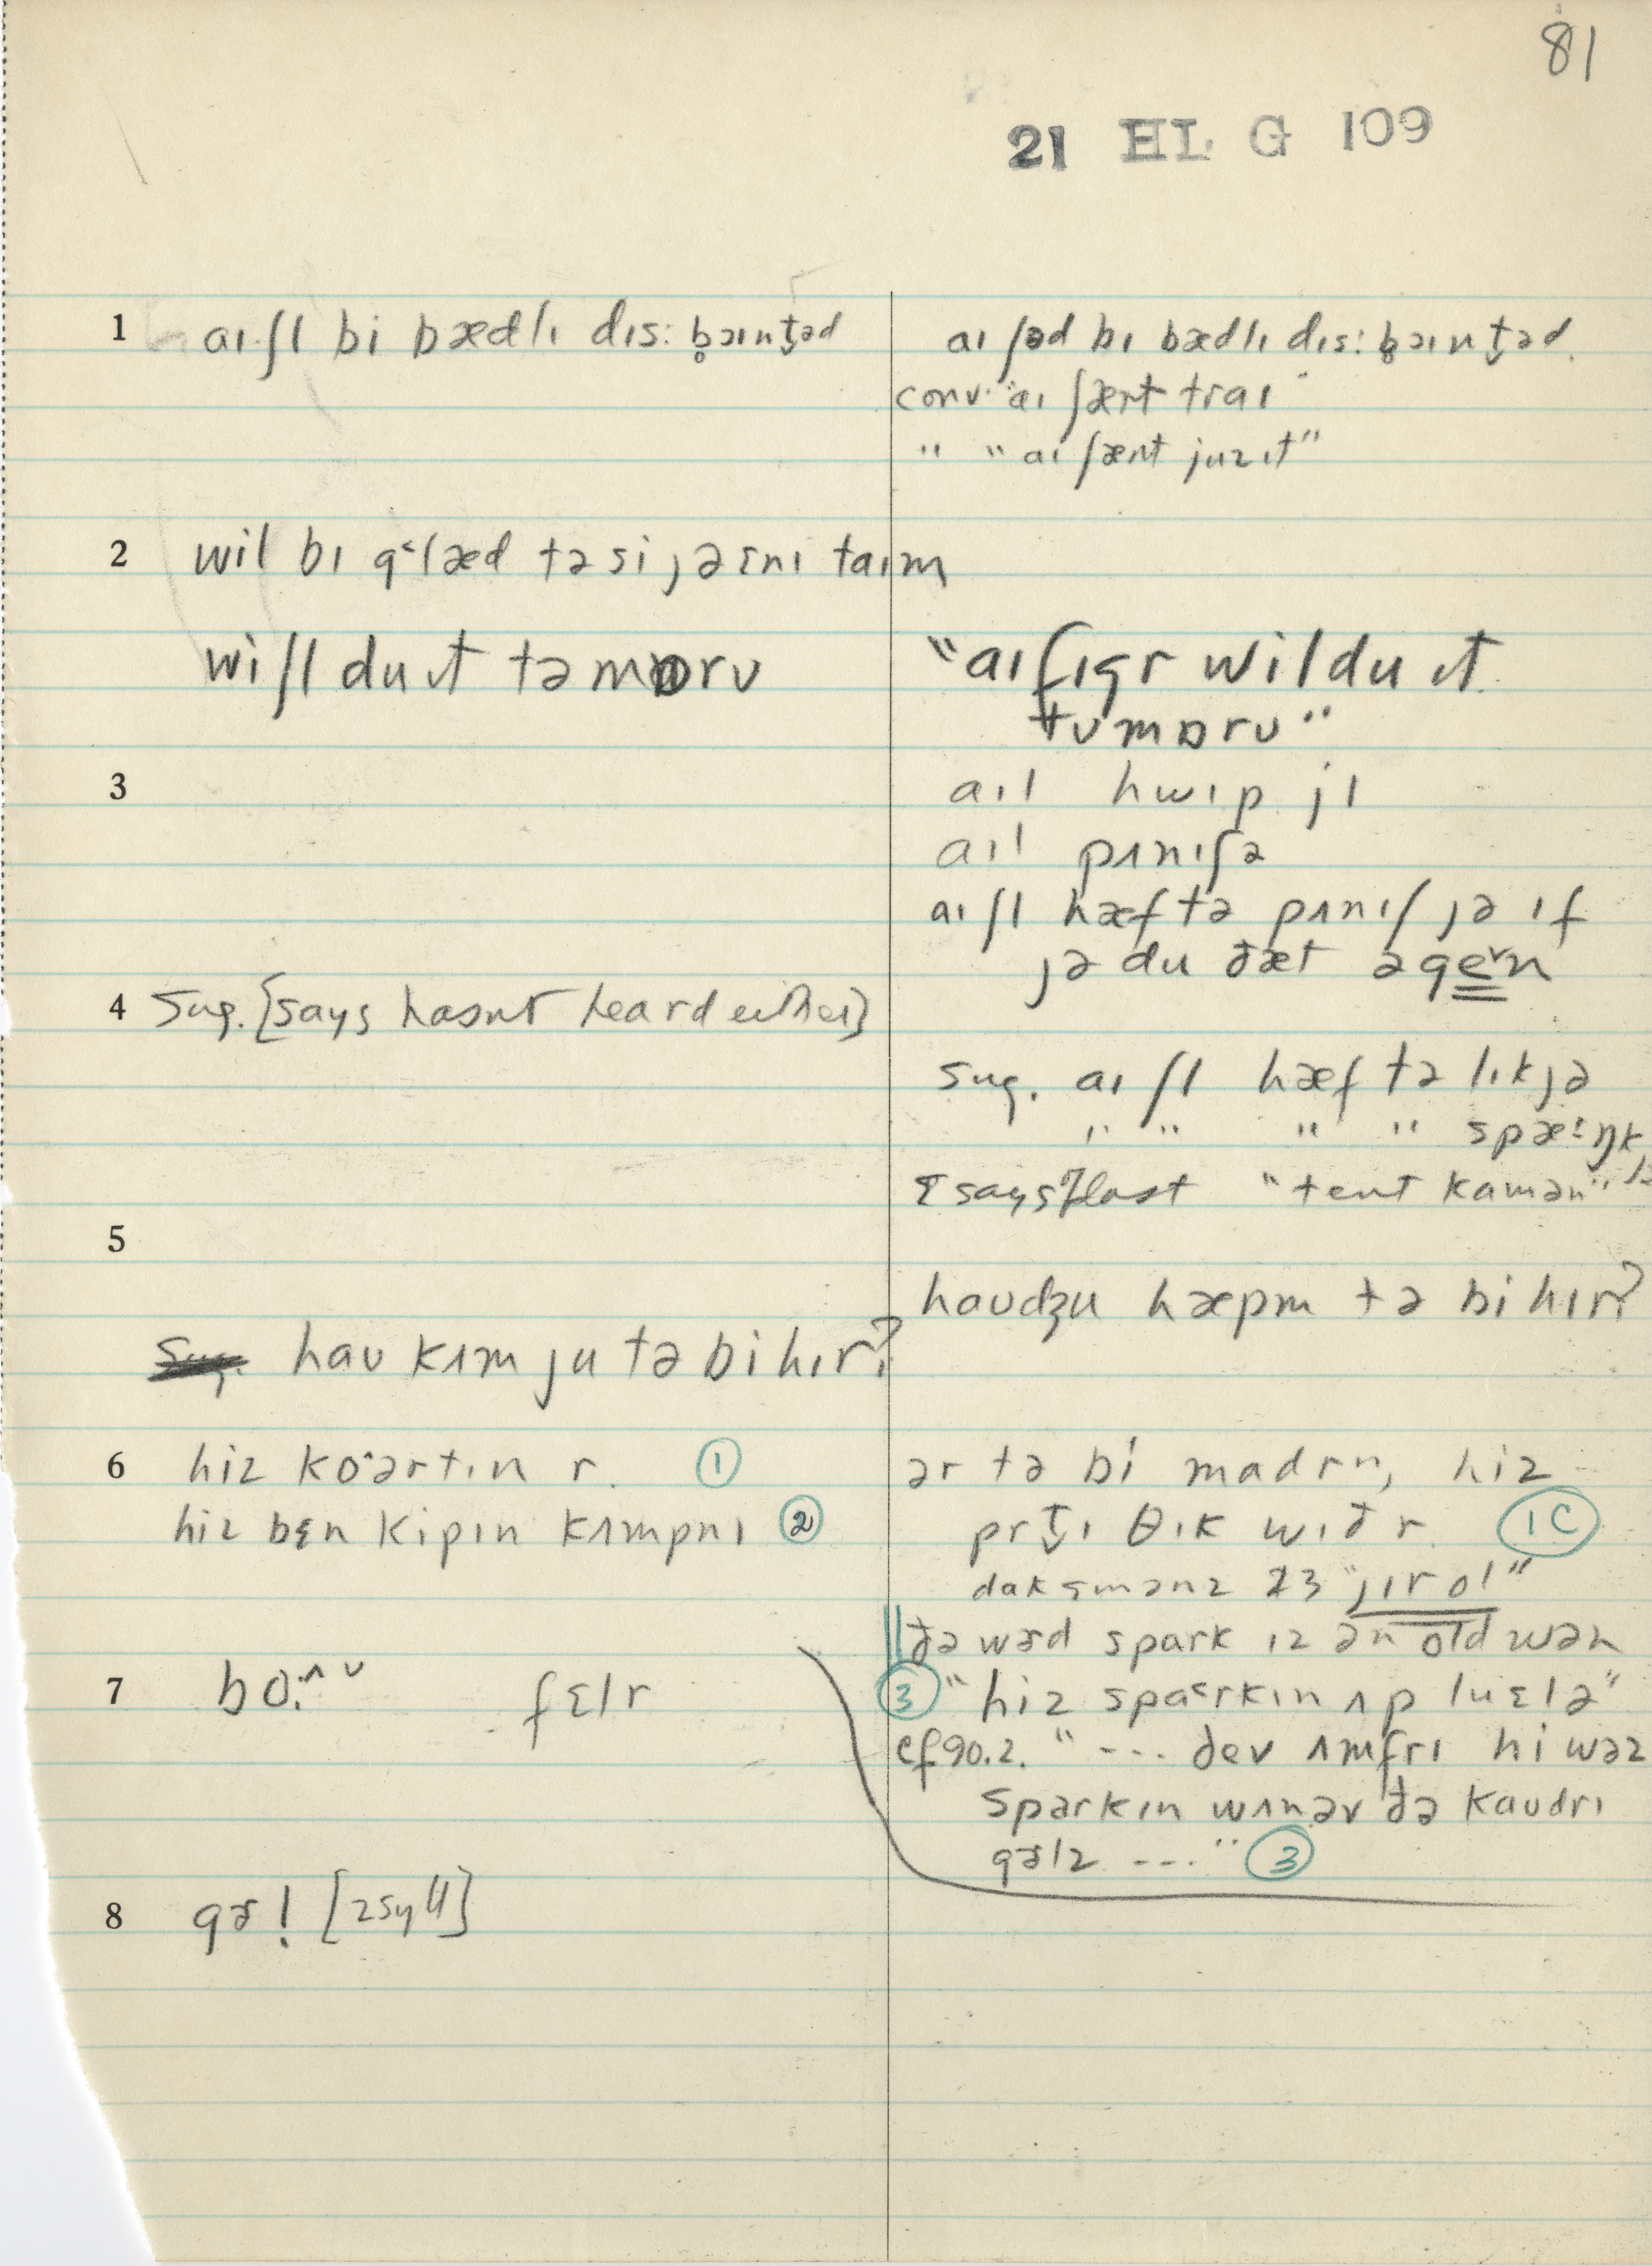 81
21 HL G 109
1 aɪ ʃl bi bædlɪ dɪs: b̥ɔɪnt̬əd
aɪ ʃəd bɪ bædlɪ dɪs: b̥ɔɪnt̬əd.
conv. "aɪ ʃænt traɪ"
" "aɪ ʃænt juz ɪt"
2 wil bɪ g˂læd tə si jə ɛnɪ taɪm
wi ʃl du ɪt təmɒrʊ
"aɪ fɪgr wil du ɪt
tʊmɒrʊ"
3 aɪl hwɪp jɪ
aɪl pʌnɪʃə
aɪ ʃl hæf tə pʌnɪʃ jə ɪf
jə du ðæt əge˅n
4 Sug. [says hasnt heard either]
sug. aɪ ʃl hæf tə lɪk jə
" " " " spæ˔ŋk jə
[says] last "tent kamən"
5 haʊdʒu hæpm tə bi hɪr?
haʊ kʌm ju tə bi hɪr?
6 hiz ko˔ərtɪn r. ①
hiz bɛn kipɪn kʌmpnɪ ②
ər tə bi madrn, hiz
prt̬ɪ θɪk wɪð r. (1C)
daksmənz 23 "jɪr ol"
ðə wɜd spark ɪz ən old wən
③ "hiz spa˂rkɪn ʌp luɛlə"
cf 90.2. "--- dev ʌmfrɪ hi wəz
sparkɪn wʌn əv ðə kaʊdrɪ
gɜlz ---" ③
7 bo.ˆ ˅ fɛlr
8 gɜl [2 syll]